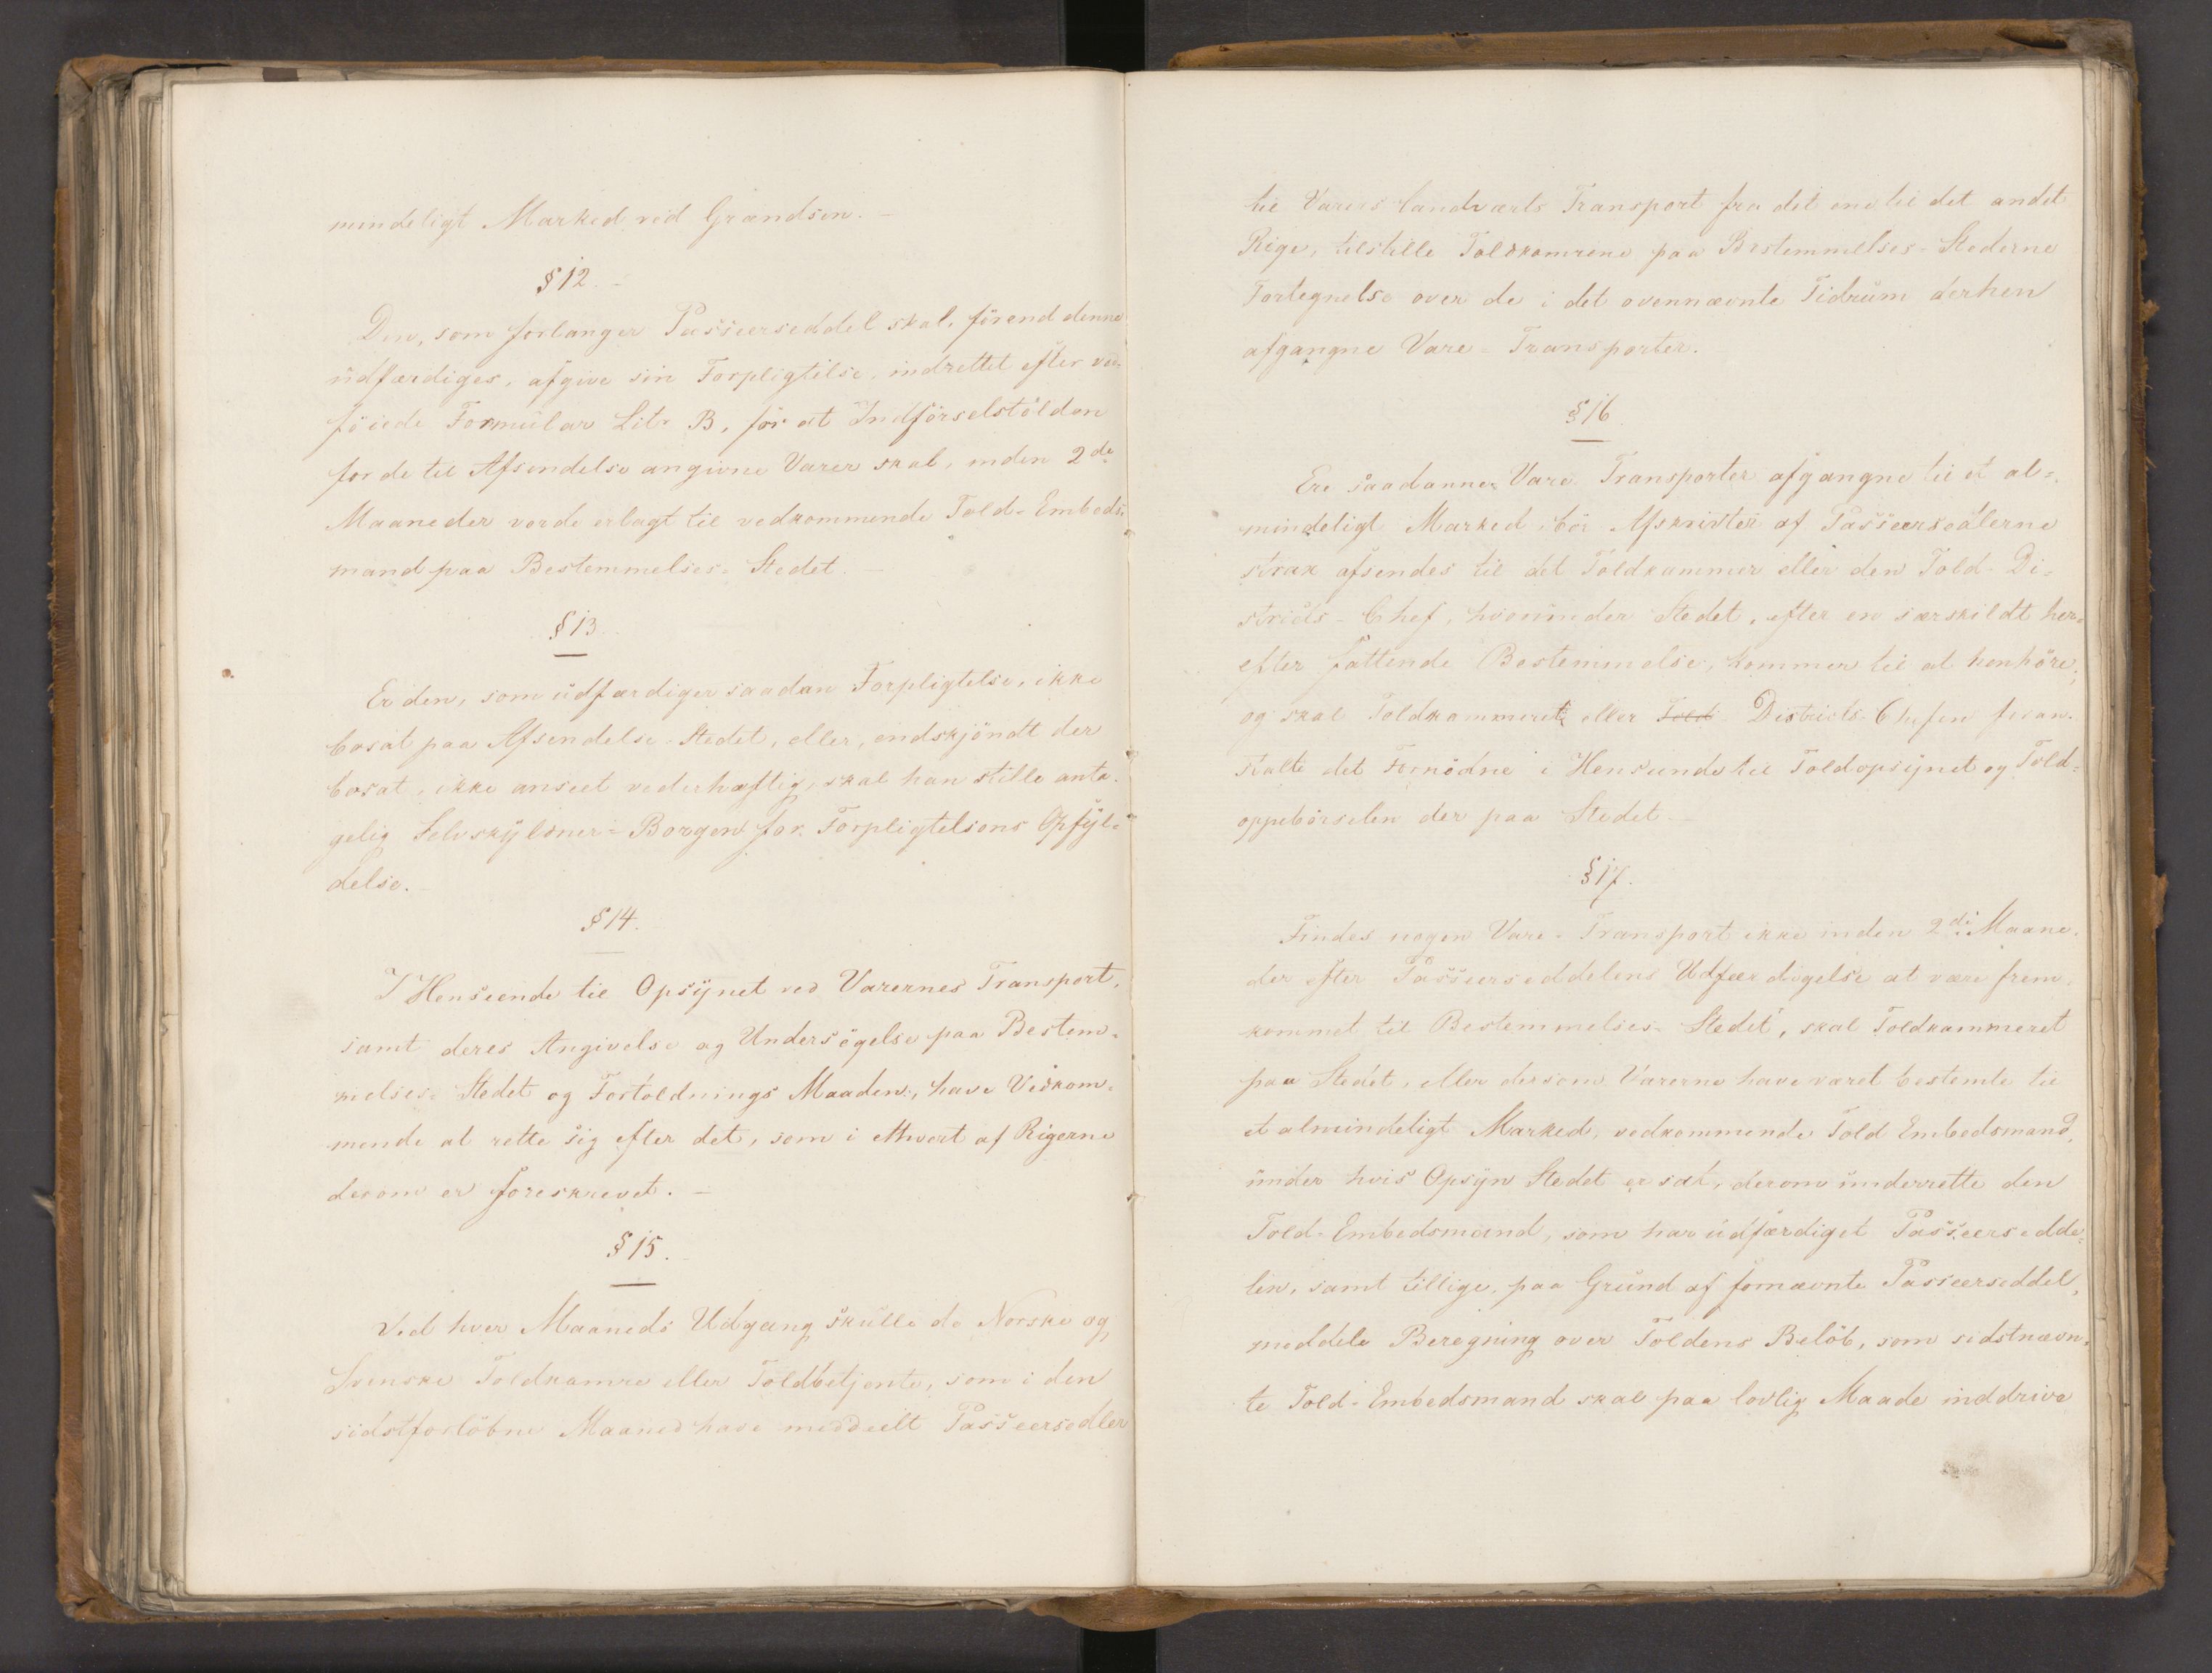 mindeligt Marked ved Grændsen. –
§ 12. –
Den, som forlanger Passeerseddel skal, förend denne
udfærdiges, afgive sin Forpligtelse, indrettet efter ved-
föiede Formular Litr B, for at Indförselstolden
for de til Afsendelse angivne Varer skal, inden 2de
Maaneder vorde erlagt til vedkommende Told-Embeds-
mand paa Bestemmelses-Stedet. –
§ 13.
Er den, som udfærdiger saadan Forpligtelse, ikke
bosat paa Afsendelse-Stedet, eller, endskjöndt der
bosat, ikke anseet vederhæftig, skal han stille anta-
gelig Selvskyldner-Borgen for Forpligtelsens Opfyl-
delse. –
§ 14.
I Henseende til Opsynet ved Varernes Transport,
samt deres Angivelse og Undersögelse paa Bestem-
melses-Stedet og Fortoldnings Maaden, have Vedkom-
mende at rette sig efter det, som i ethvert af Rigerne
derom er foreskrevet. –
§ 15.
Ved hver Maaneds Udgang skulle de Norske og
Svenske Toldkamre eller Toldbetjente, som i den
sidstforlöbne Maaned have meddeelt Passeersedler
til Varers landværts Transport fra det ene til det andet
Rige, tilstille Toldkamrene paa Bestemmelses-Stederne
Fortegnelse over de i det ovennævnte Tidrum derhen
afgangne Vare-Transporter.
§ 16
Ere saadanne Vare Transporter afgangne til et al-
mindeligt Marked, bör Afskrivter af Passeersedlerne
strax afsendes til det Toldkammer eller den Told-Di-
stricts-Chef, hvorunder Stedet, efter en særskildt her-
efter fattende Bestemmelse, kommer til at henhöre;
og skal Toldkammeret eller Told- Districts-Chefen foran-
stalte det Fornödne i Henseende til Toldopsynet og Told-
oppebörselen der paa Stedet. –
§ 17.
Findes nogen Vare-Transport ikke inden 2de Maane-
der efter Passeerseddelens Udfærdigelse at være frem-
kommet til Bestemmelses-Stedet, skal Toldkammeret
paa Stedet, eller dersom Varerne have været bestemte til
et almindeligt Marked, vedkommende Told Embedsmand,
under hvis Opsyn Stedet er sat, derom underrette den
Told-Embedsmand, som har udfærdiget Passeersedde-
len, samt tillige, paa Grund af fornævnte Passeerseddel,
meddele Beregning over Toldens Belöb, som sidstnævn-
te Told-Embedsmand skal paa lovlig Maade inddrive